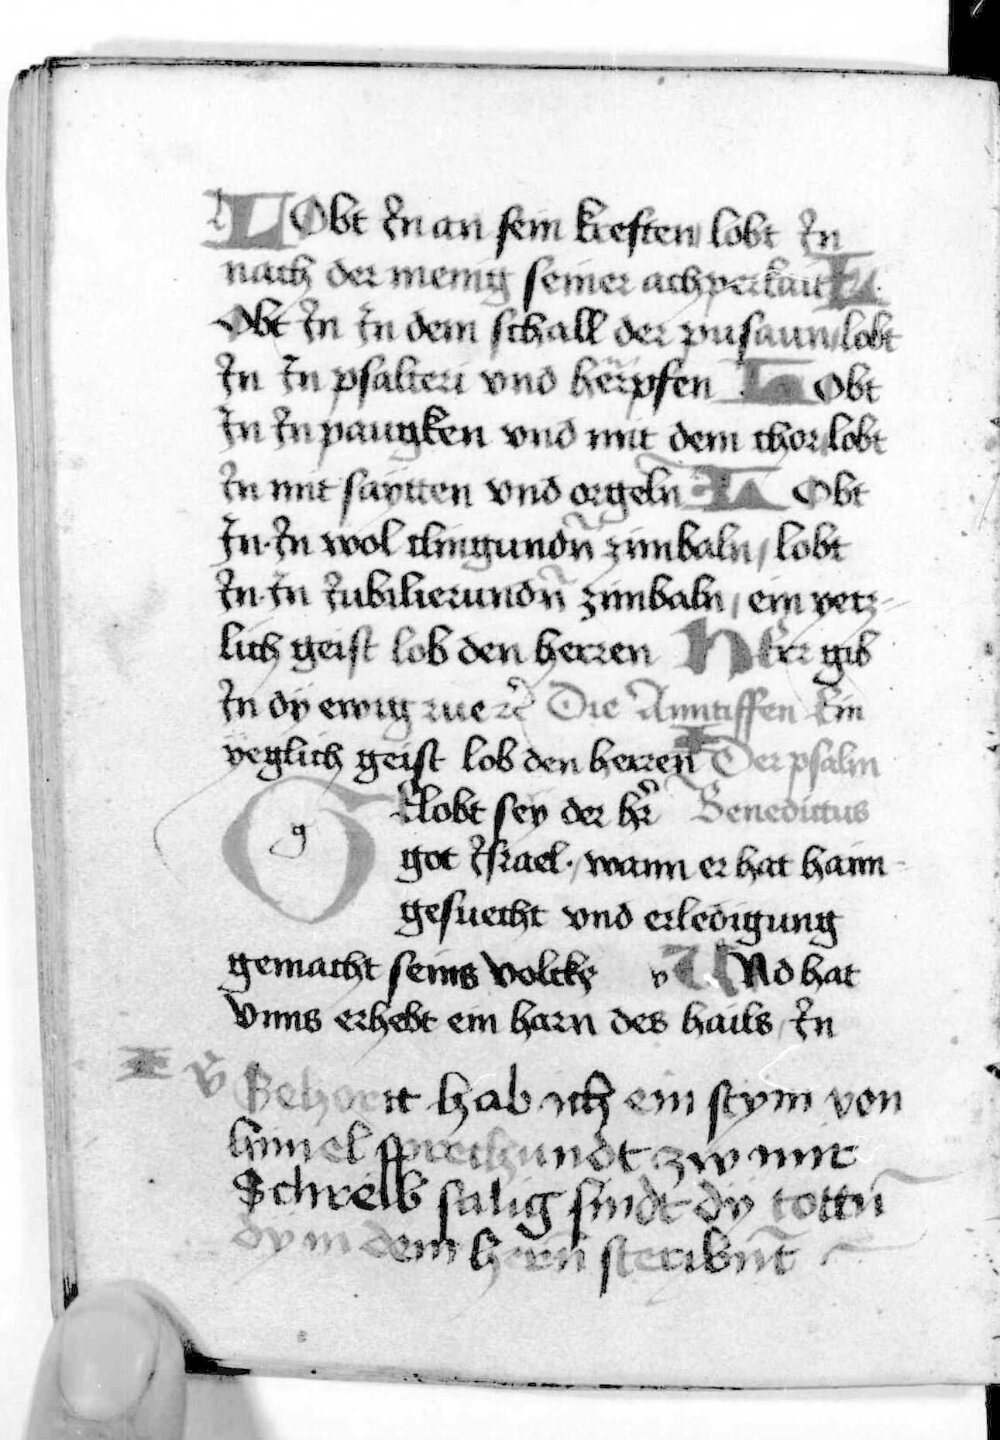 LObt in an sein kreften lobt in
nach der menig seiner achperkait L
Obt in in dem schall der pusaun / lobt
in in psalteri vnd herpfen LObt
in in paugken vnd mit dem chor / lobt
in mit saytten vnd orgeln LObt
in in wol clingundn̄ zimbaln / lobt
in in iubilierundn̄ zimbaln / ein yetz-
lich geist lob den herren HErr gib
in dy ewig rue ꝛc̄ Die Anntiffen Ein
yeglich geist lob den herren Der psalm
GElobt sey der hr̄ Benedictus
got israel · wann er hat haim-
gesuecht vnd erledigung
gemacht seins volcks VNd hat
vnns erhebt ein harn des hails / in
v̄ Gehortt hab ich ein stym von
himel sprechundt zw mir
Schreib salig sindt dy tottn̄
dy in dem hern̄ steribnt̄